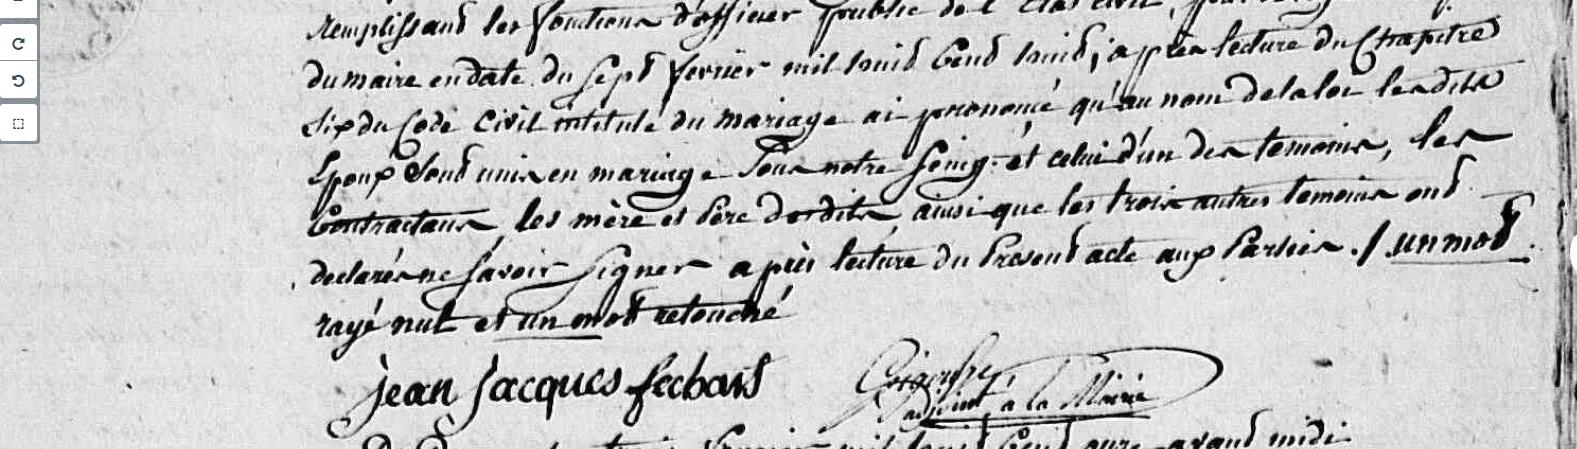 remplissant les fonctions d'officier public de l'état civil, par
du maire en date du sept fevrier mil huit Cent huit, après lecture du Chapitre
six du Code Civil intitulé du mariage ai prononcé qu'au nom de la loi lesdits
Epoux sont unis en mariage sous notre seing et celui d'un des temoins, les
Contractans, les mère et Père desdits, ainsi que les trois autres temoins ont
declarés ne savoir signer après lecture du Present acte aux Parties ./. un mot
rayé nul et un mot retouché
jean Jacques fechant
adjoint à la Mairie
mil huit Cent onze avant midi